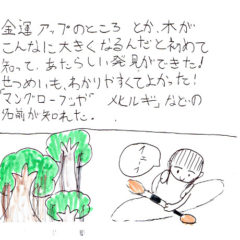 金運アップのところ とか、木が
こんなに大きくなるんだと初めて
知って、あたらしい発見ができた!
せつめいも、わかりやすくてよかった!
「マングローブッガ メヒルギ」などの
名前が知れた。
イェイ